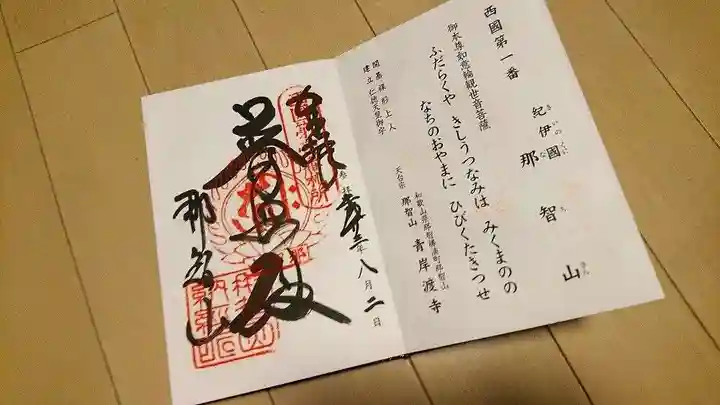 西國第一番
紀伊國 那智山
き いの くに な ち さん
御本尊如意輪観世音菩薩
ふだらくや きしうつなみは みくまのの
なちのおやまに ひびくたきつせ
和歌山県那智勝浦町那智山
天台宗 那智山 青岸渡寺
開基裸形上人
建立仁徳天皇御宇
奉拝
参拝
年八月二日
普照殿
那智山